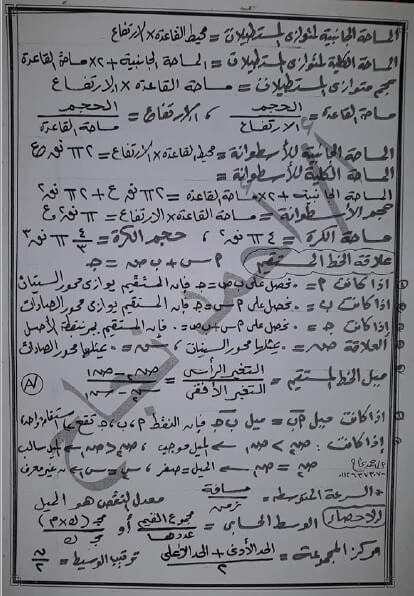 المساحة الجانبية لمتوازي المستطيلات = محيط القاعدة × الارتفاع
المساحة الكلية لمتوازي المستطيلات = المساحة الجانبية + ٢ × مساحة القاعدة
حجم متوازي المستطيلات = مساحة القاعدة × الارتفاع
مساحة القاعدة = الحجم / الارتفاع ، الارتفاع = الحجم / مساحة القاعدة
المساحة الجانبية للأسطوانة = محيط القاعدة × الارتفاع = ٢ π نق ع
المساحة الكلية للأسطوانة =
المساحة الجانبية + ٢ × مساحة القاعدة = ٢ π نق ع + ٢ π نق٢
حجم الأسطوانة = مساحة القاعدة × الارتفاع = π نق٢ ع
مساحة الكرة = ٤ π نق٢ ، حجم الكرة = ٤/٣ π نق٣
علاقة الخط المستقيم م س + ب ص = جـ
إذا كانت م = ٠ نحصل على ب ص = جـ فإن المستقيم يوازي محور السينات
إذا كانت ب = ٠ نحصل على م س = جـ فإن المستقيم يوازي محور الصادات
إذا كانت جـ = ٠ نحصل على م س + ب ص = ٠ فإن المستقيم يمر بنقطة الأصل
العلاقة ص = ٠ يمثلها محور السينات ، س = ٠ يمثلها محور الصادات
ميل الخط المستقيم = التغير الرأسي / التغير الأفقي = ص٢ - ص١ / س٢ - س١
إذا كانت ميل م ب = ميل ب جـ فإن النقط م ، ب ، جـ تقع على استقامة واحدة
إذا كانت : ص٢ > ص١ الميل موجب ، ص٢ < ص١ الميل سالب
ص٢ = ص١ الميل = صفر ، س٢ = س١ غير معرف
السرعة المتوسطة = مسافة / زمن معدل النقص هو الميل
الإحصاء الوسط الحسابي = مجموع القيم / عددها أو مجـ (ك × م) / مجـ ك
مركز المجموعة = الحد الأدنى + الحد الأعلى / ٢ ترتيب الوسيط = ن / ٢